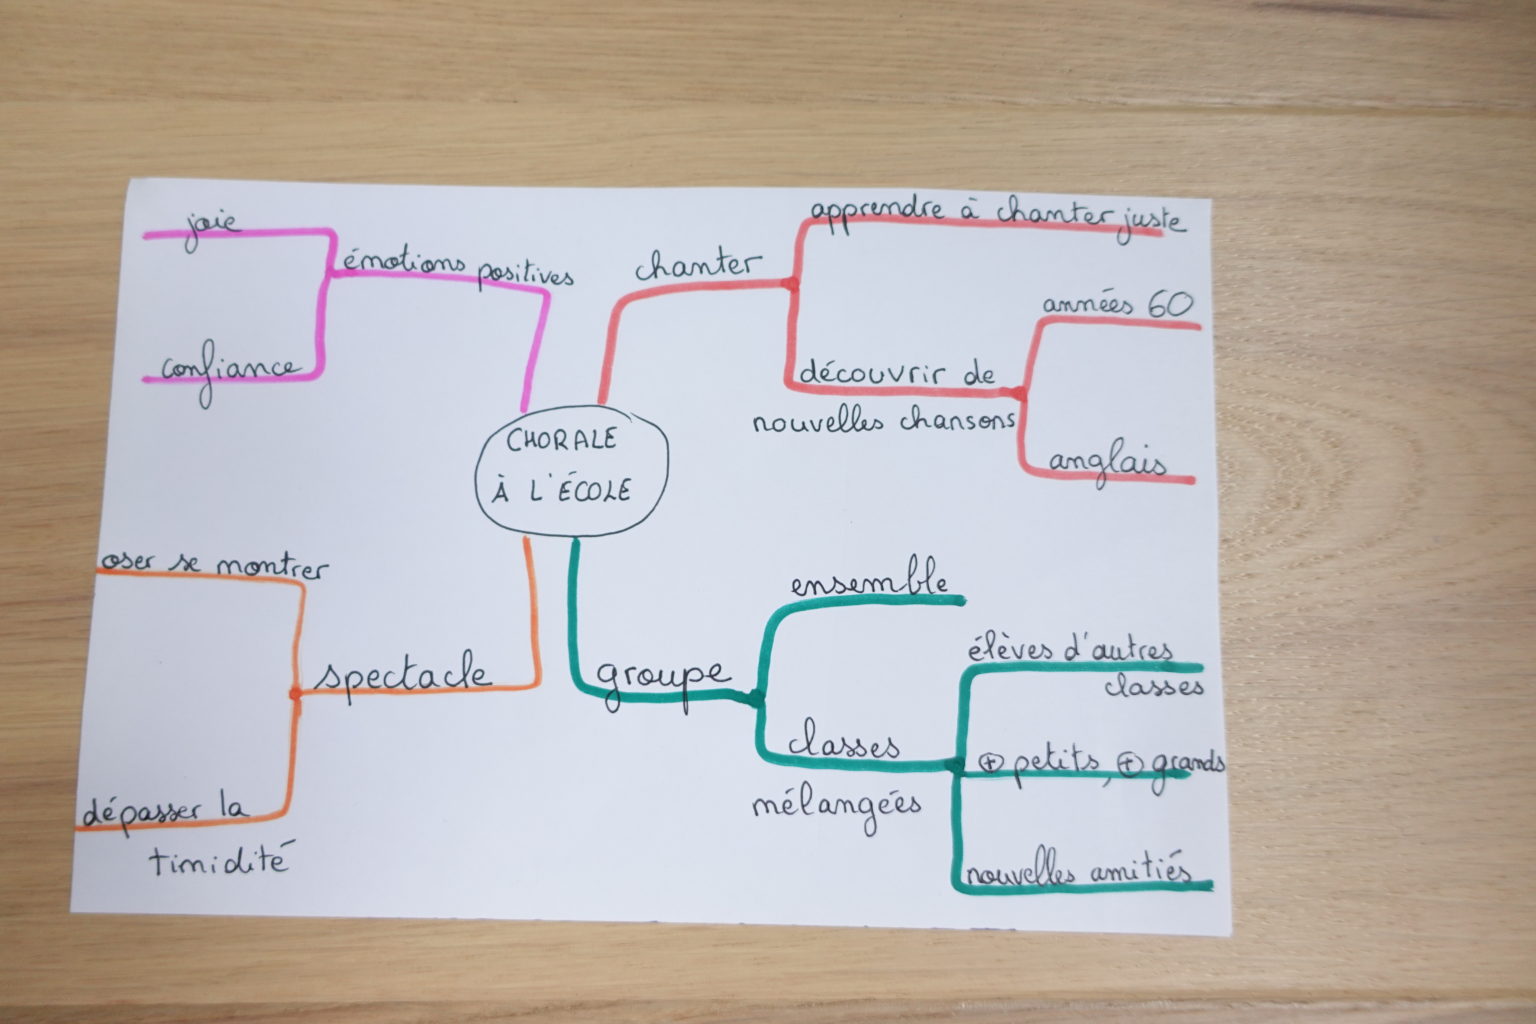 CHORALE
À L'ÉCOLE
chanter
apprendre à chanter juste
découvrir de
nouvelles chansons
années 60
anglais
groupe
ensemble
classes
mélangées
élèves d'autres
classes
⊕ petits, ⊕ grands
nouvelles amitiés
spectacle
oser se montrer
dépasser la
timidité
émotions positives
joie
confiance